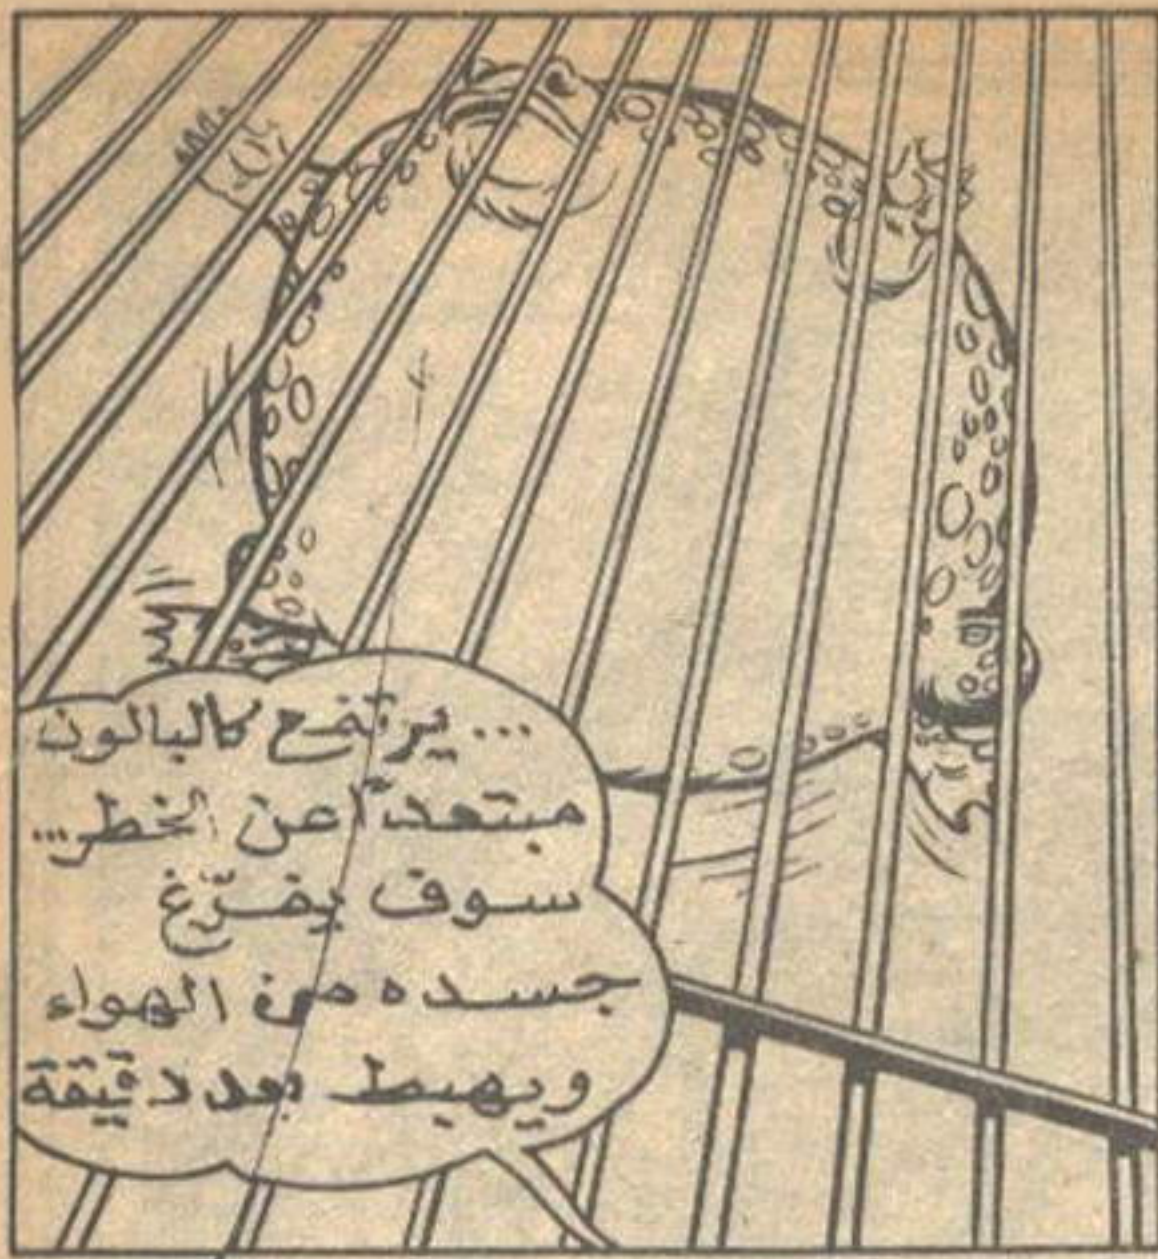 ... يرتفع كالبالون
مبتعداً عن الخطر...
سوف يفرّغ
جسده من الهواء
ويهبط بعد دقيقة